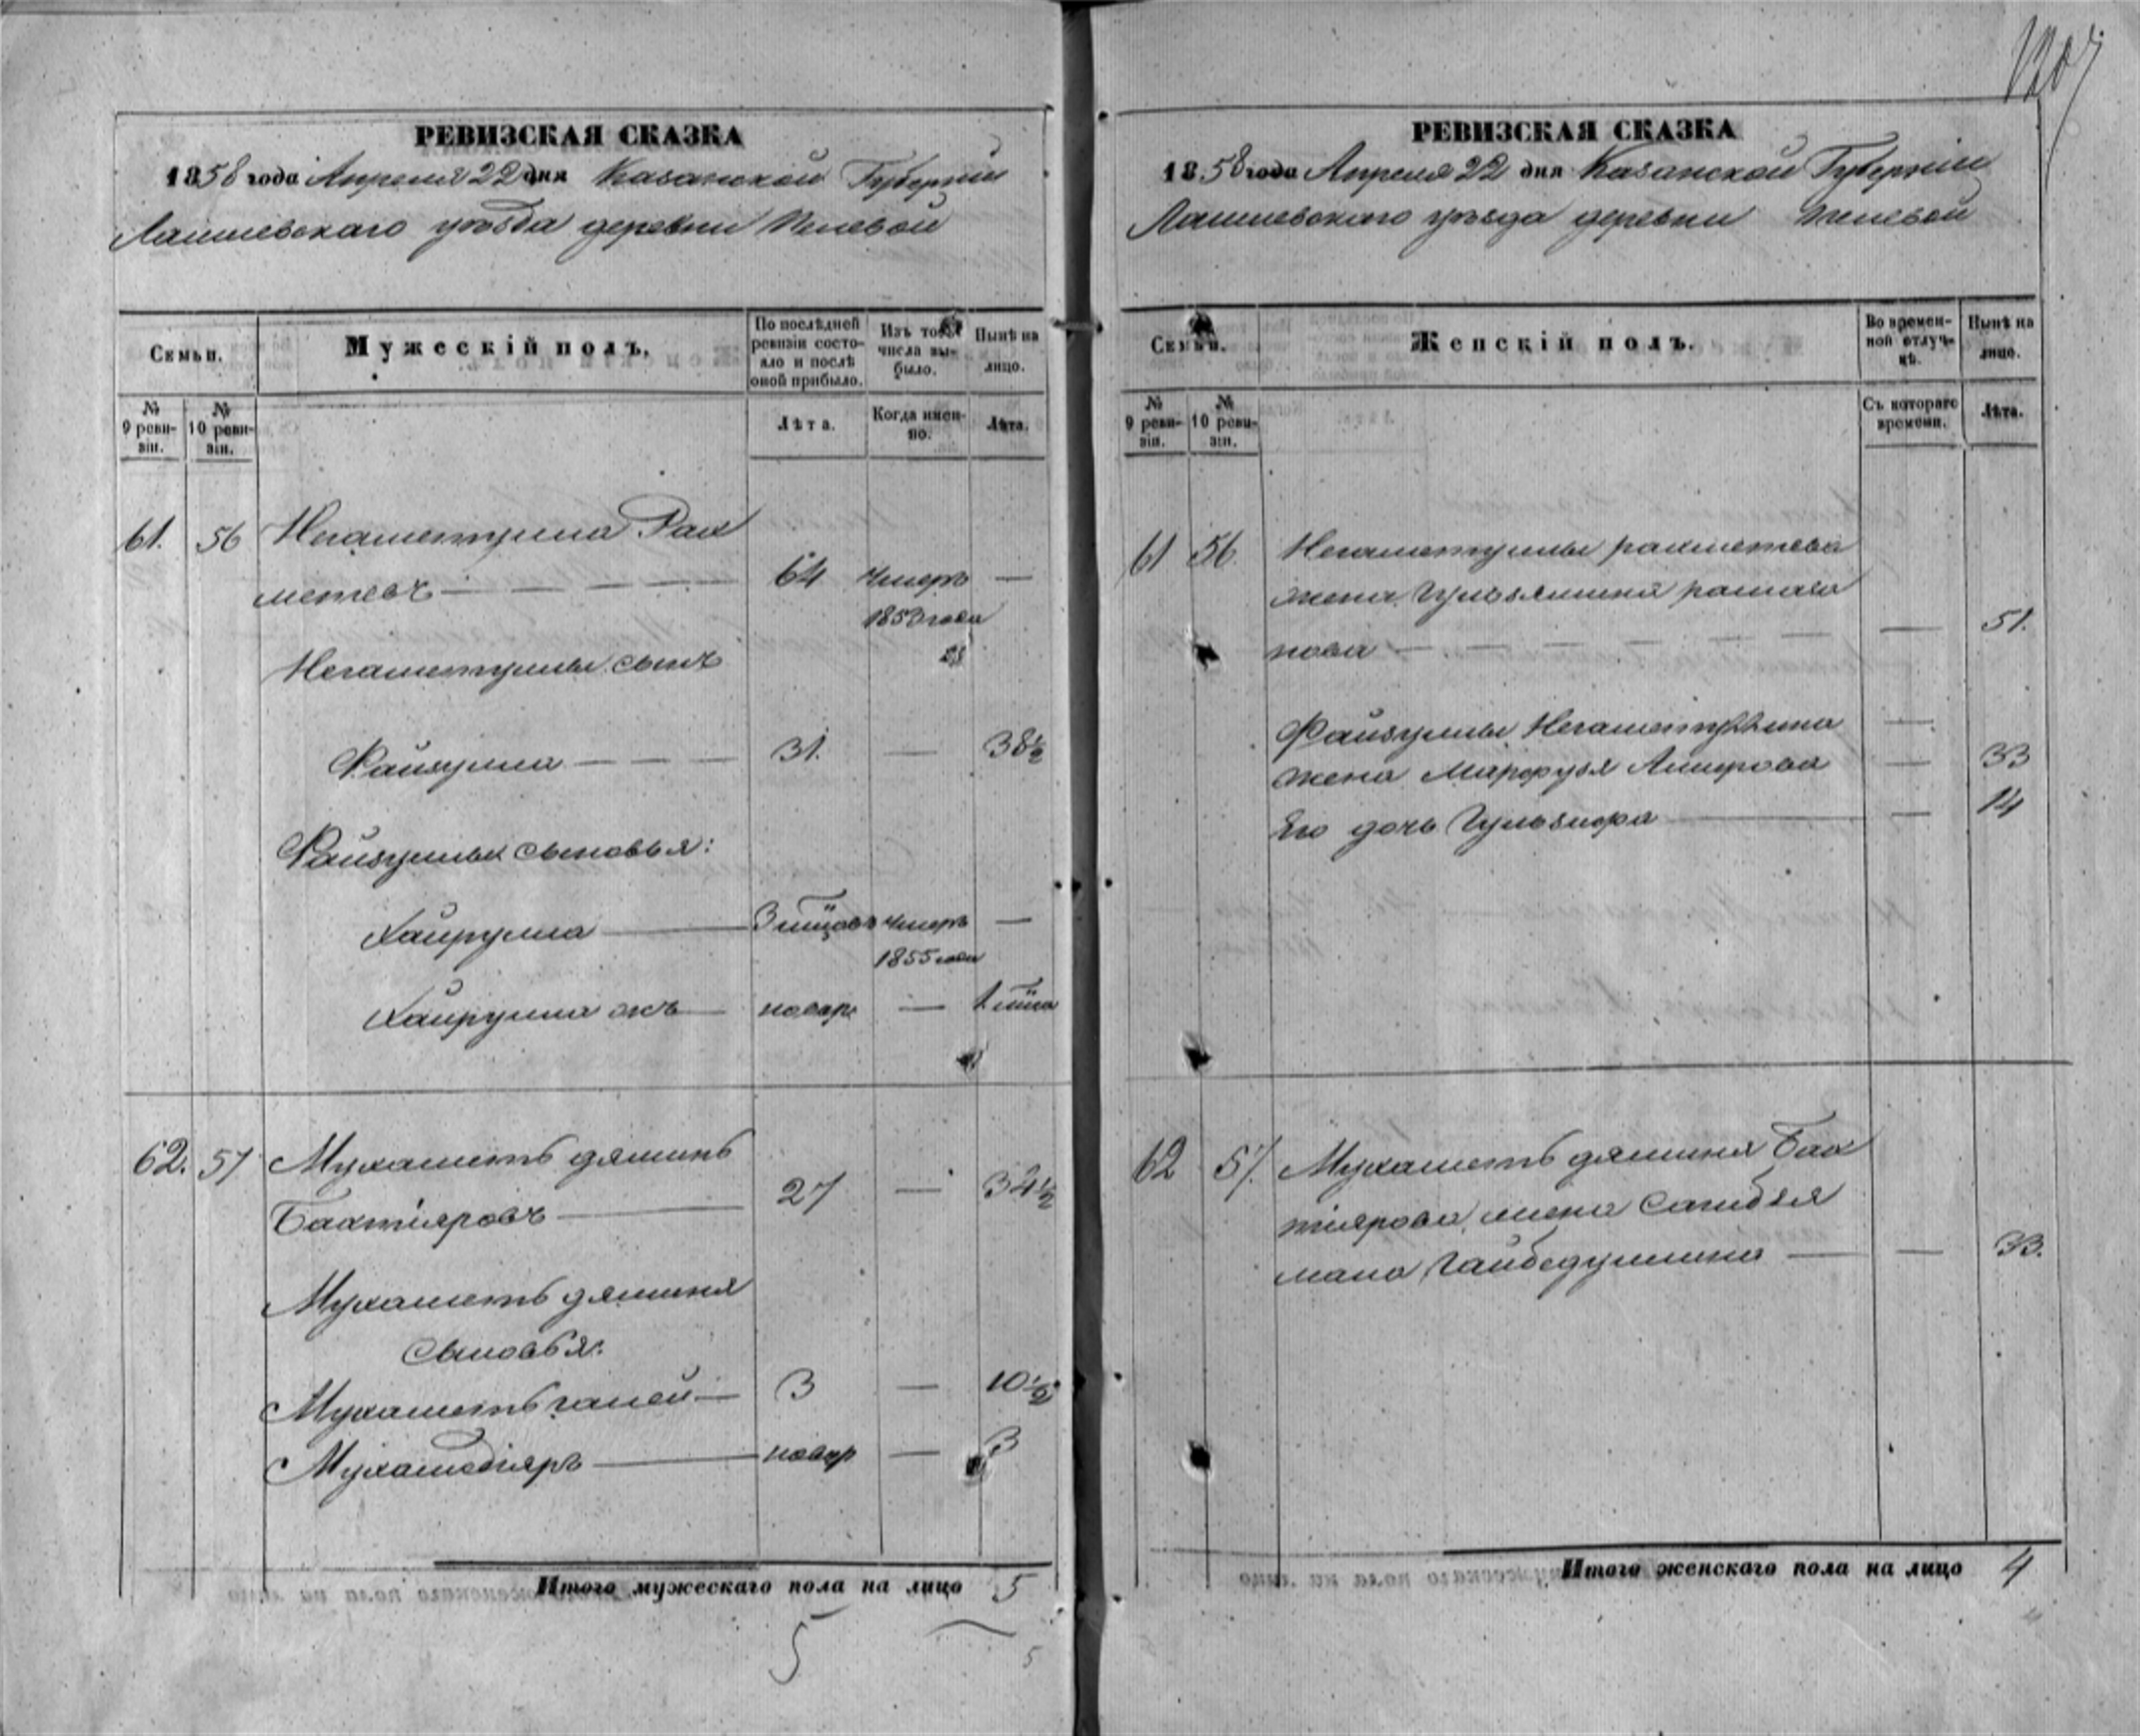 РЕВИЗСКАЯ СКАЗКА
1858 года Апреля 22 дня Казанской Губернiи
Лаишевскаго уѣзда деревни
Семьи.
Мужескiй полъ.
По послѣдней ревизiи состояло и послѣ оной прибыло.
Изъ того числа выбыло.
Нынѣ на лицо.
№ 9 ревизiи.
№ 10 ревизiи.
Лѣта.
Когда именно.
Лѣта.
61. 56 Негаметулла Рах
метевъ — — — — 64 умеръ —
1853 года
Негаметуллы сынъ
Файзулла — — — 31. — 38½
Файзуллы сыновья:
Хайрулла — 3 мцовъ умеръ —
1855 года
Хайрулла жъ — новор — 1 мца
62. 57 Мухаметь дяминь
Бахтiяровъ — 27 — 34½
Мухаметь дяминя
сыновья:
Мухаметьганей — 3 — 10½
Мухамедiяръ — новор — 3
Итого мужескаго пола на лицо 5
5
5
1207
РЕВИЗСКАЯ СКАЗКА
1858 года Апреля 22 дня Казанской Губернiи
Лаишевскаго уѣзда деревни
Семьи.
Женскiй полъ.
Во временной отлучкѣ.
Нынѣ на лицо.
№ 9 ревизiи.
№ 10 ревизiи.
Съ котораго времени.
Лѣта.
61 56. Негаметуллы рахметева
жена
нова — — — — — 51.
Файзуллы Негаметуллина —
жена Марфузя Амирова — 33
Его дочь Гульзюфа — — 14
62 57. Мухаметь дяминя Бах
тiярова жена Сагидзя
мала Гайбедуллина — — 33.
Итого женскаго пола на лицо 4